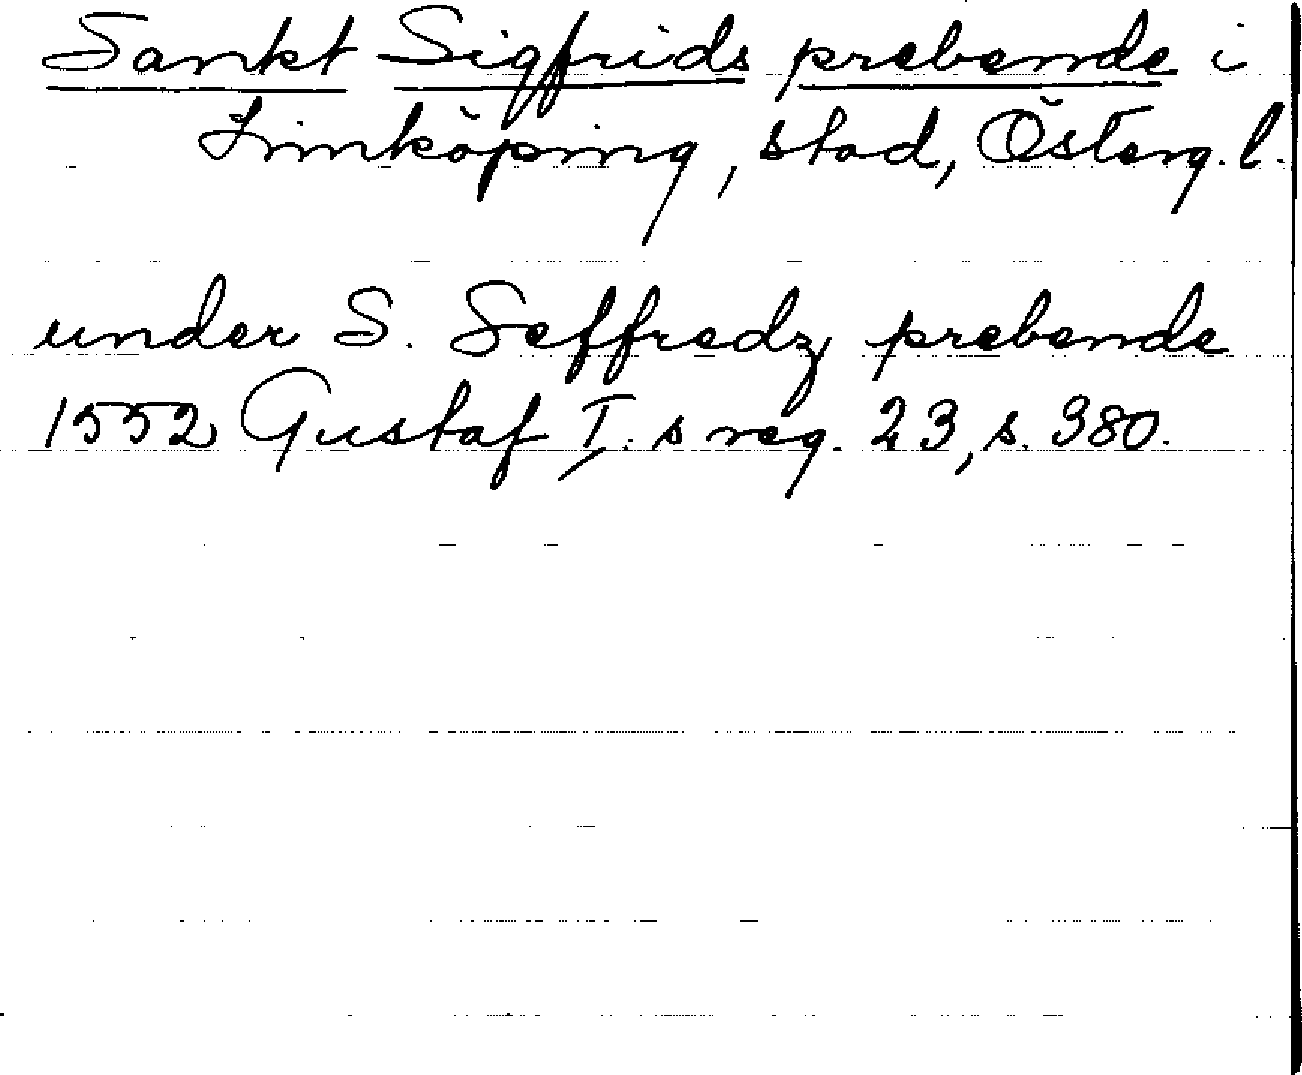 Sankt Sigfrids prebende i
Linköping, stad, Österg. l.
under S. Seffredz prebende
1552 Gustaf I. s reg. 23, s. 380.